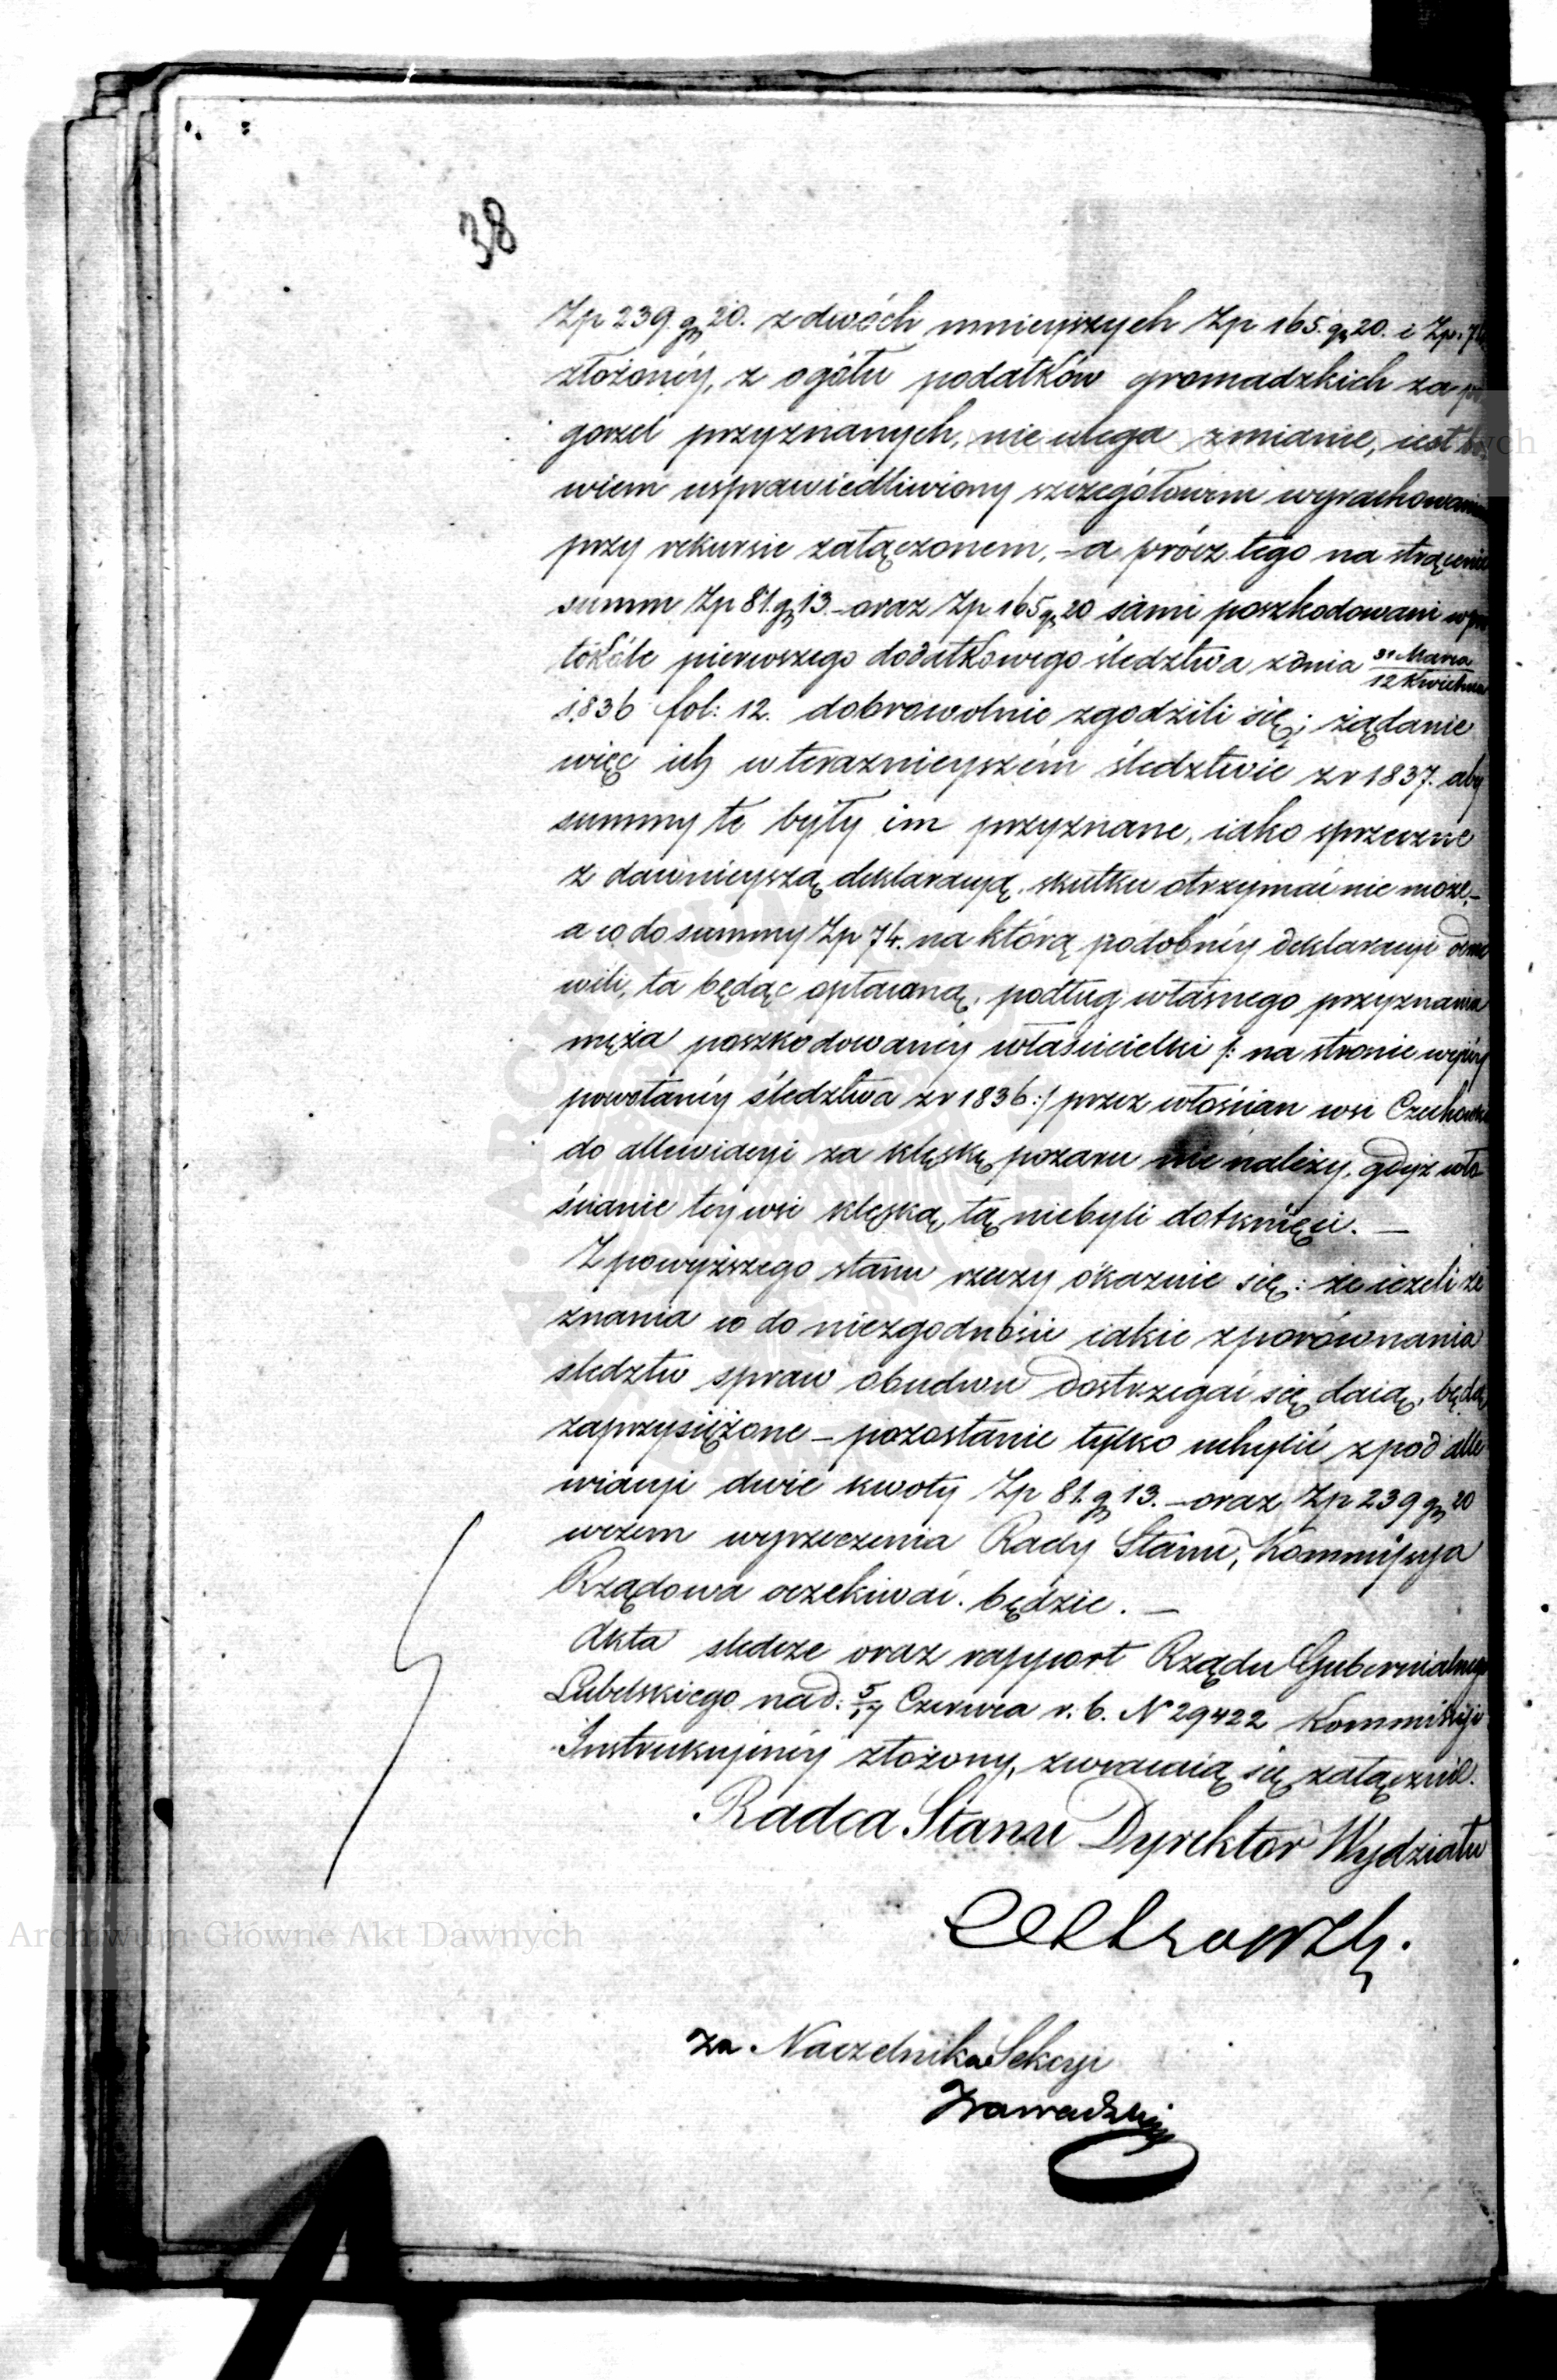 38
Zp 239. gr 20. z dwóch mnieyszych Zp 165. gr 20. i Zp. 74
złożonéy, z ogółu podatków gromadzkich za po
gorzel przyznanych, nie ulega zmianie, iest bo
wiem usprawiedliwiony szczegółowém wyrachowaniem
przy rekursie załączonem, – a prócz tego na strącenie
summ Zp 81. gr 13. – oraz Zp 165 gr 20 sami poszkodowani w pro
tokóle pierwszego dodatkowego śledztwa z dnia 31 Marca / 12 Kwietnia
1836 fol: 12. dobrowolnie zgodzili się; żądanie
więc ich w teraznieyszém śledztwie z r 1837. aby
summy te były im przyznane, iako sprzeczne
z dawnieyszą deklaracyą, skutku otrzymać nie może, –
a co do summy Zp 74. na którą podobnéy deklaracyi odmó
wili, ta będąc opłacaną, podług własnego przyznania
męża poszkodowanéy właścicielki /: na stronie wyżéy
powołanéy śledztwa z r 1836 :/ przez włościan wsi Czechowka
do allewiacyi za klęskę pożaru nie należy, gdyż wło
ścianie téy wsi klęską tą niebyli dotknięci. —
Z powyższego stanu rzeczy okazuie się: że ieżeli ze
znania co do niezgodności iakie z porównania
śledztw spraw obudwu dostrzegać się daią, będą
zaprzysiężone – pozostanie tylko uchylić z pod alle
wiacyi dwie kwoty Zp 81. gr 13. – oraz Zp 239 gr 20
w czem wyrzeczenia Rady Stanu, Kommissya
Rządowa oczekiwać będzie. —
Akta śledcze oraz rapport Rządu Gubernialnego
Lubelskiego nad: 5/17 Czerwca r. b. N 29422 Kommissyi
Instrukcyinéy złożony, zwracaią się załącznie.
Radca Stanu Dyrektor Wydziału
za Naczelnika Sekcyi
Zawadzki
Archiwum Główne Akt Dawnych
Archiwum Główne Akt Dawnych